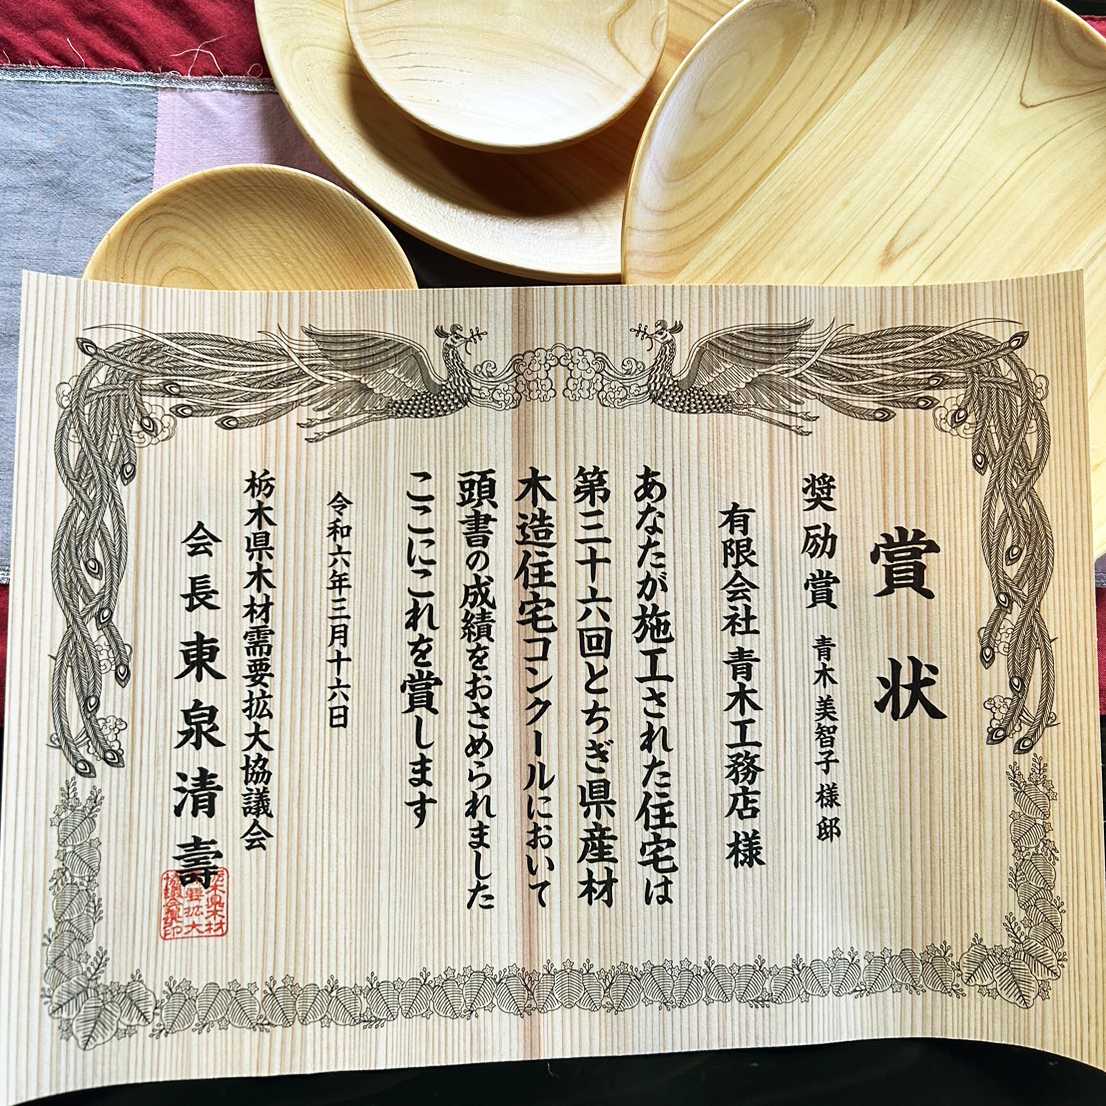 賞状
奨励賞 青木美智子様邸
有限会社 青木工務店 様
あなたが施工された住宅は
第三十六回とちぎ県産材
木造住宅コンクールにおいて
頭書の成績をおさめられました
ここにこれを賞します
令和六年三月十六日
栃木県木材需要拡大協議会
会長 東泉清壽